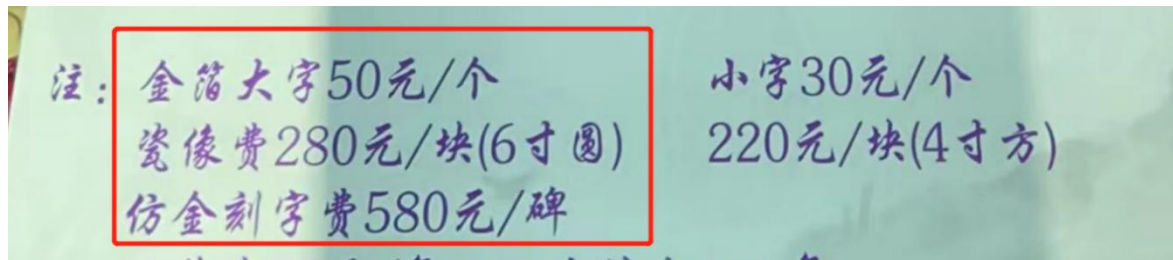 注：金箔大字50元/个 小字30元/个
瓷像费280元/块(6寸圆) 220元/块(4寸方)
仿金刻字费580元/碑